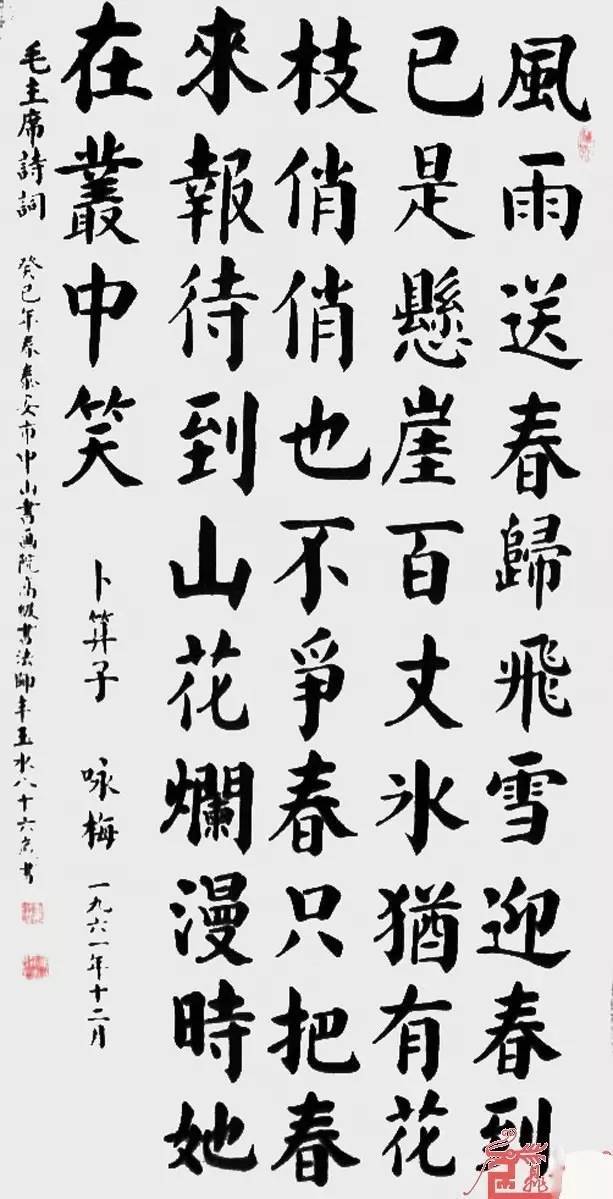 風雨送春歸飛雪迎春到
已是懸崖百丈冰猶有花
枝俏俏也不爭春只把春
來報待到山花爛漫時她
在叢中笑
卜算子 咏梅 一九六一年十二月
毛主席詩詞 癸巳年春泰安市中山書画院高级書法師年玉水八十六歲書